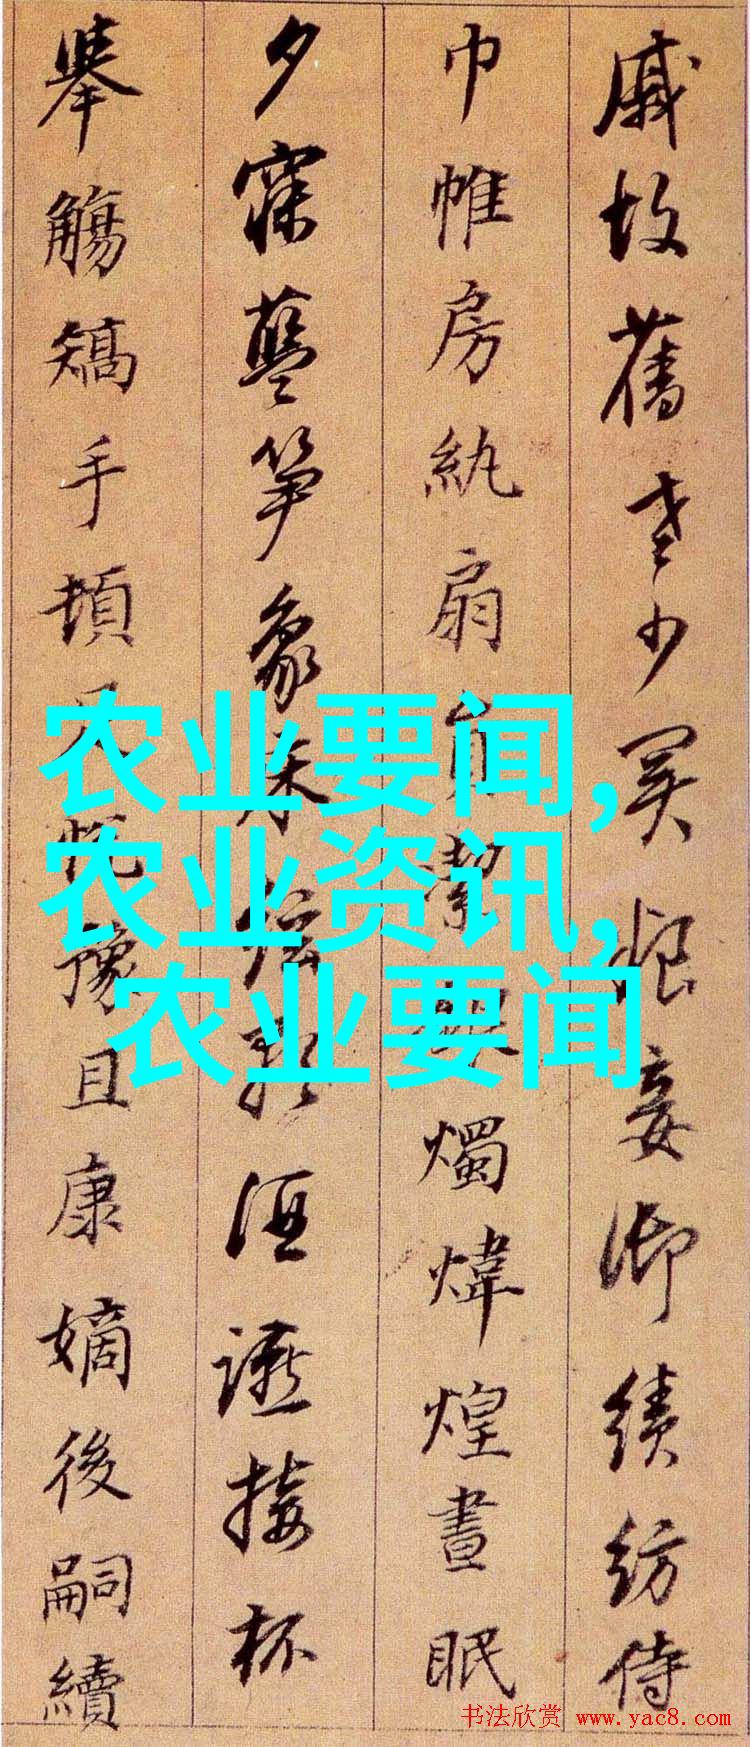 戚故舊老少異粮妾御績紡侍
巾帷房紈扇員潔銀燭煒煌晝眠
夕寐藍笋象床絃歌酒讌接杯
舉觴矯手頓足悅豫且康嫡後嗣續
农业要闻,
农业资讯,
农业要闻
书法欣赏 www.yac8.com